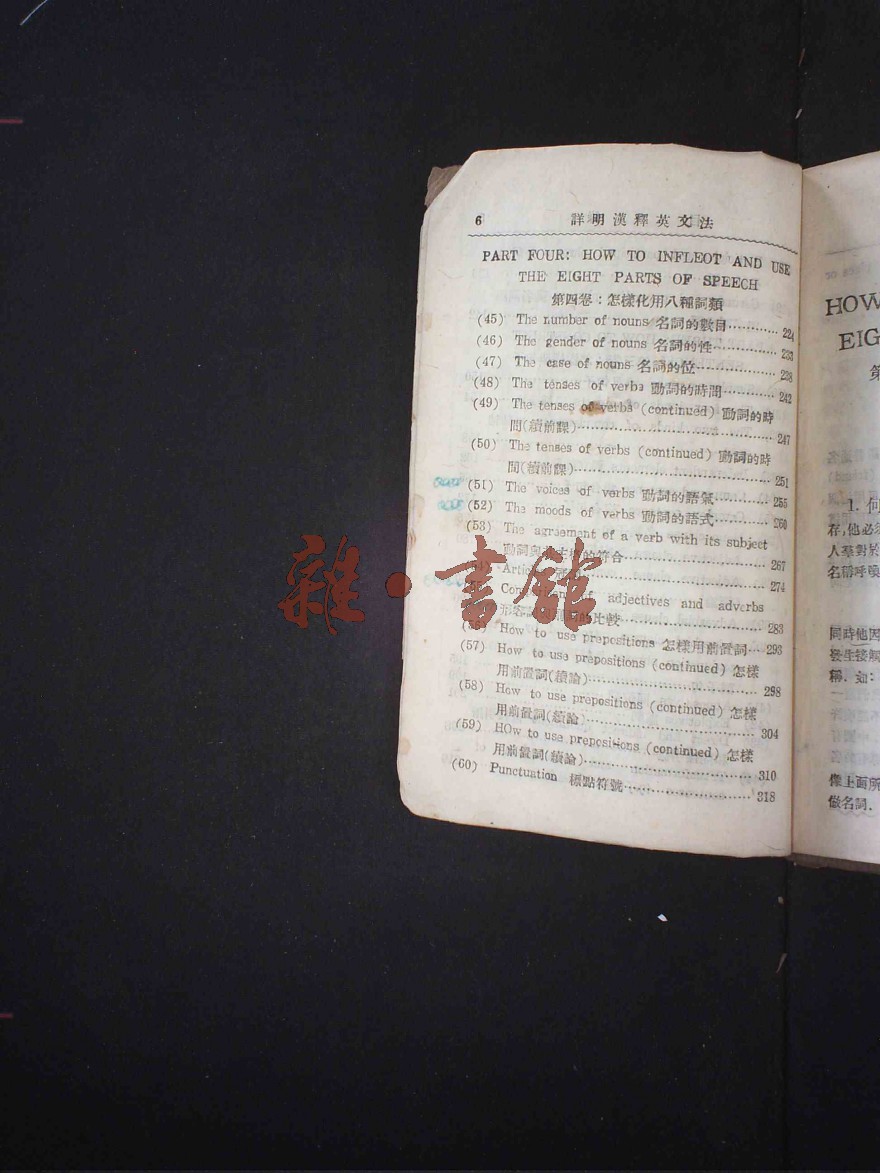 6 詳明漢釋英文法
PART FOUR: HOW TO INFLEOT AND USE
THE EIGHT PARTS OF SPEECH
第四卷：怎樣化用八種詞類
(45) The number of nouns 名詞的數目············ 224
(46) The gender of nouns 名詞的性··············· 233
(47) The case of nouns 名詞的位·················· 238
(48) The tenses of verbs 動詞的時間············ 242
(49) The tenses of verbs (continued) 動詞的時
間(續前課)············································ 247
(50) The tenses of verbs (continued) 動詞的時
間(續前課)············································ 251
(51) The voices of verbs 動詞的語氣············ 255
(52) The moods of verbs 動詞的語式············ 260
(53) The agreement of a verb with its subject
動詞與 的符合······························ 267
274
of adjectives and adverbs
的比較······························ 283
(56) How to use prepositions 怎樣用前置詞··· 293
(57) How to use prepositions (continued) 怎樣
用前置詞(續論)······································ 298
(58) How to use prepositions (continued) 怎樣
用前置詞(續論)······································ 304
(59) HOw to use prepositions (continued) 怎樣
用前置詞(續論)······································ 310
(60) Punctuation 標點符號··························· 318
雜·書館
HOW
EIG
第
1. 何
存,他必須
人羣對於
名稱呼喚
同時他因
發生接觸
稱. 如:
像上面所
做名詞.